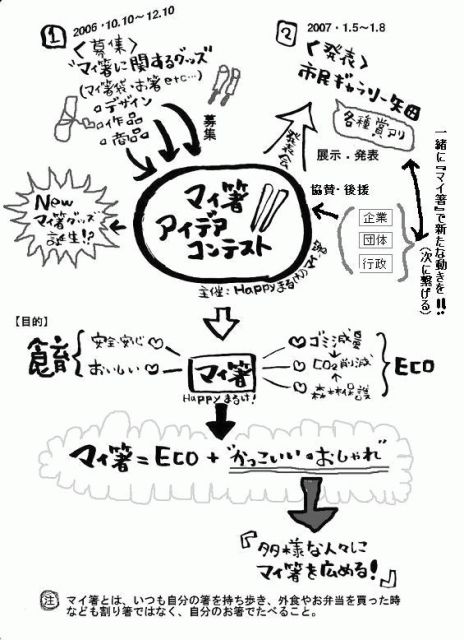 1 2006・10.10～12.10
〈募集〉
"マイ箸に関するグッズ"
(マイ箸袋・お箸etc…)
デザイン
作品
商品
募集
2 2007・1.5～1.8
〈発表〉
市民ギャラリー矢田
各種賞アリ
発表会
展示・発表
協賛・後援
企業
団体
行政
一緒に『マイ箸』で新たな動きを!!
(次に繋げる)
New
マイ箸グッズ
誕生!?
マイ箸
アイデア
コンテスト
主催：Happyまるけ
【目的】
食育
安全・安心
おいしい
マイ箸
Happyまるけ!
ゴミ減量
CO2削減
森林保護
ECO
マイ箸=ECO+"かっこいい・おしゃれ"
『多様な人々に
マイ箸を広める!』
注 マイ箸とは、いつも自分の箸を持ち歩き、外食やお弁当を買った時
なども割り箸ではなく、自分のお箸でたべること。